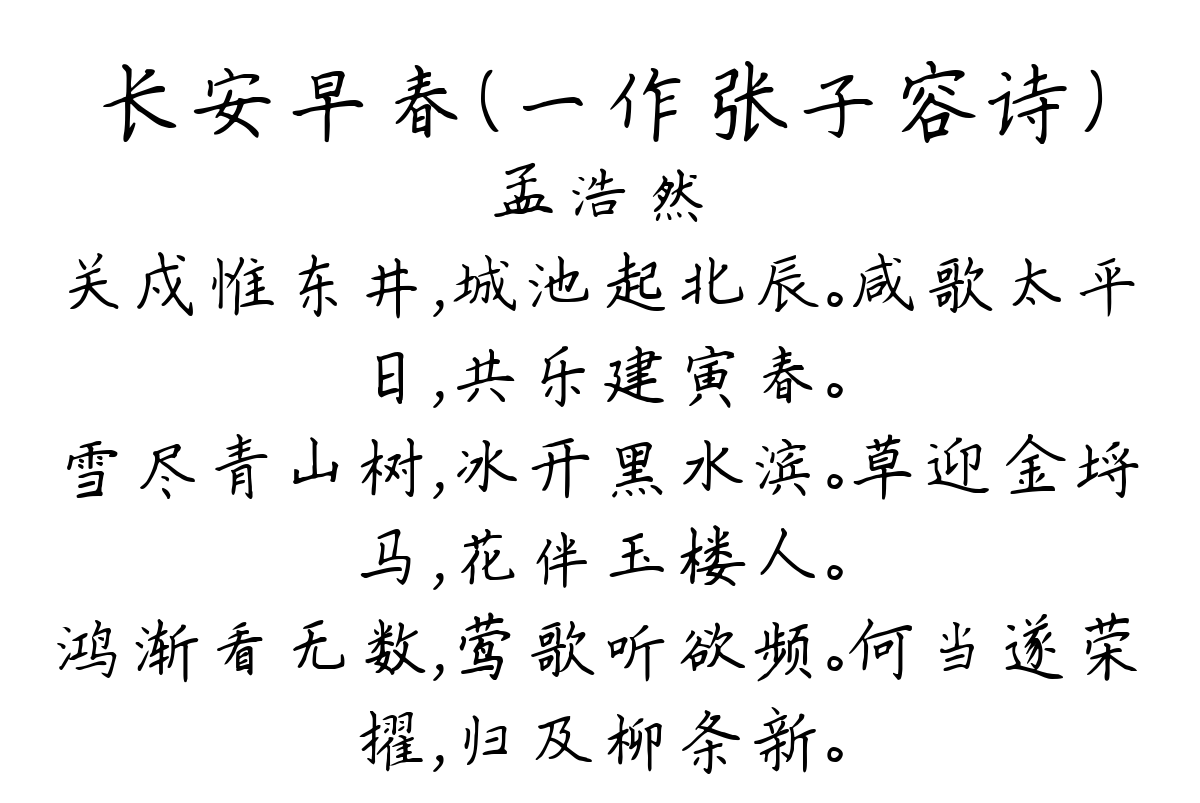 长安早春(一作张子容诗)
孟浩然
关戍惟东井,城池起北辰。咸歌太平
日,共乐建寅春。
雪尽青山树,冰开黑水滨。草迎金埒
马,花伴玉楼人。
鸿渐看无数,莺歌听欲频。何当遂荣
擢,归及柳条新。